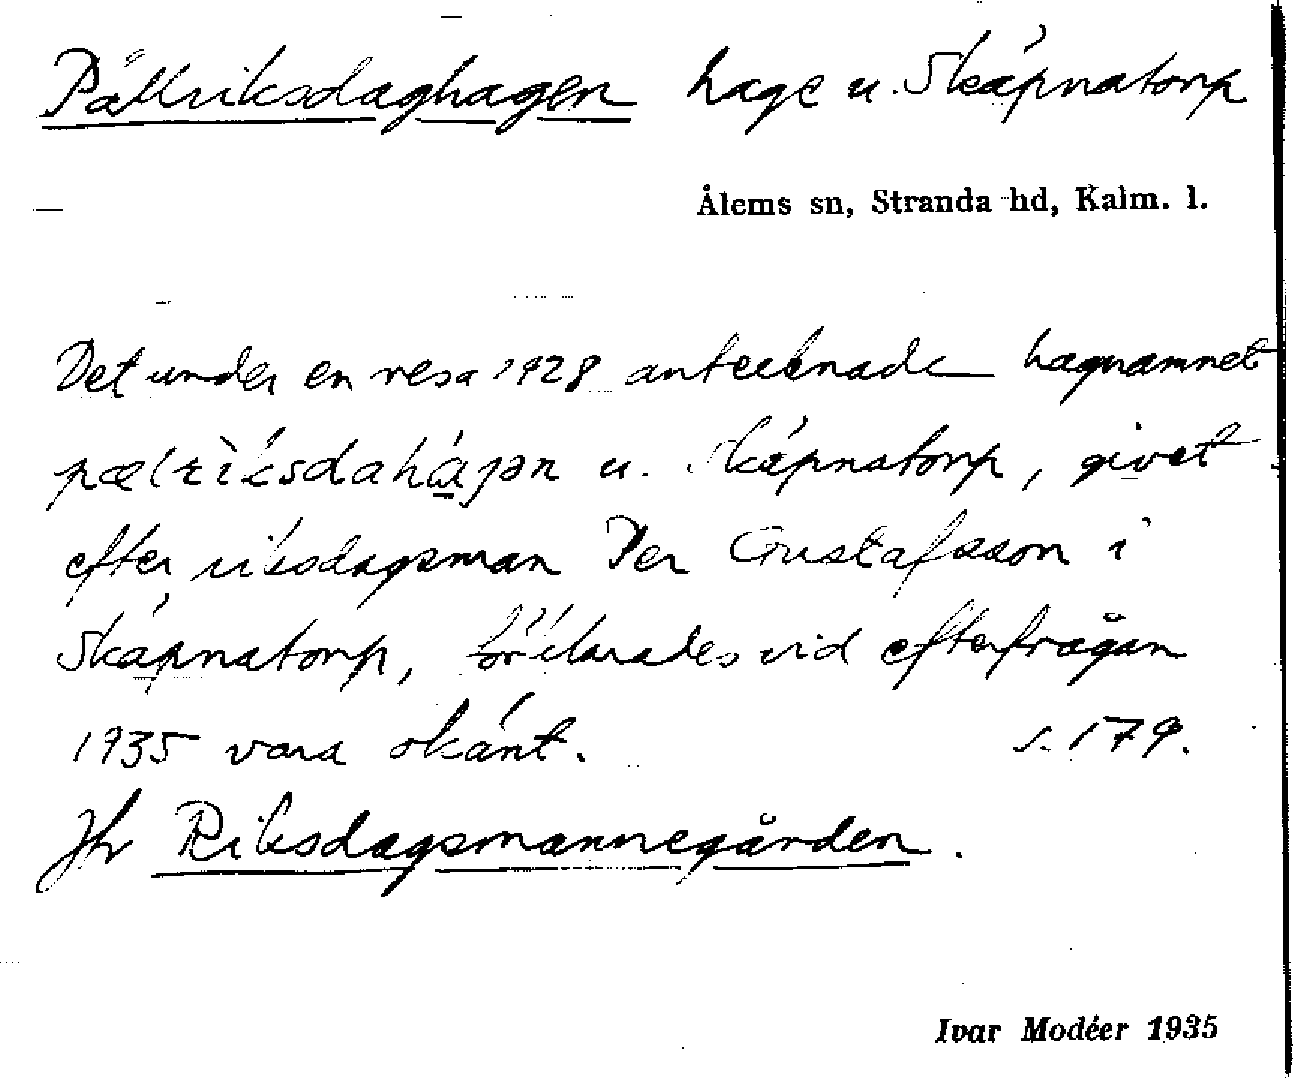 Pällriksdaghagen hage u. Skäpnatorp
Ålems sn, Stranda hd, Kalm. l.
Det under en resa 1928 antecknade hagnamnet
u. Skäpnatorp, givet
efter riksdagsman Per Gustafsson i
Skäpnatorp, förklarades vid efterfrågan
1935 vara okänt. s. 179.
Jfr Riksdagsmannegården.
Ivar Modéer 1935